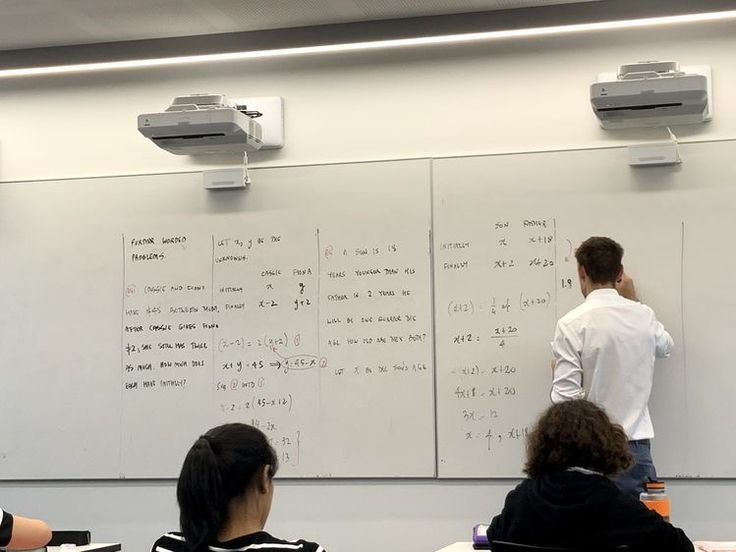 FURTHER WORDED
PROBLEMS.
CASSIE AND FIONA
HAVE $45 BETWEEN THEM.
AFTER CASSIE GIVES FIONA
$2, SHE STILL HAS TWICE
AS MUCH. HOW MUCH DOES
EACH HAVE INITIALLY?
LET x, y BE THE
UNKNOWNS.
CASSIE FIONA
INITIALLY x y
FINALLY x-2 y+2
(x-2) = 2(y+2) ①
x+y = 45 ⟹ y=45-x ②
② INTO ①
x-2 = 2(45-x+2)
= 32
= 13
A SON IS 18
YEARS YOUNGER THAN HIS
FATHER. IN 2 YEARS HE
WILL BE ONE QUARTER HIS
AGE. HOW OLD ARE THEY BOTH?
LET x BE THE SON'S AGE
SON FATHER
INITIALLY x x+18
FINALLY x+2 x+20
(x+2) = 1/4 of (x+20)
x+2 = x+20/4
(x+2) = x+20
4x+8 = x+20
3x = 12
x = 4, x+18